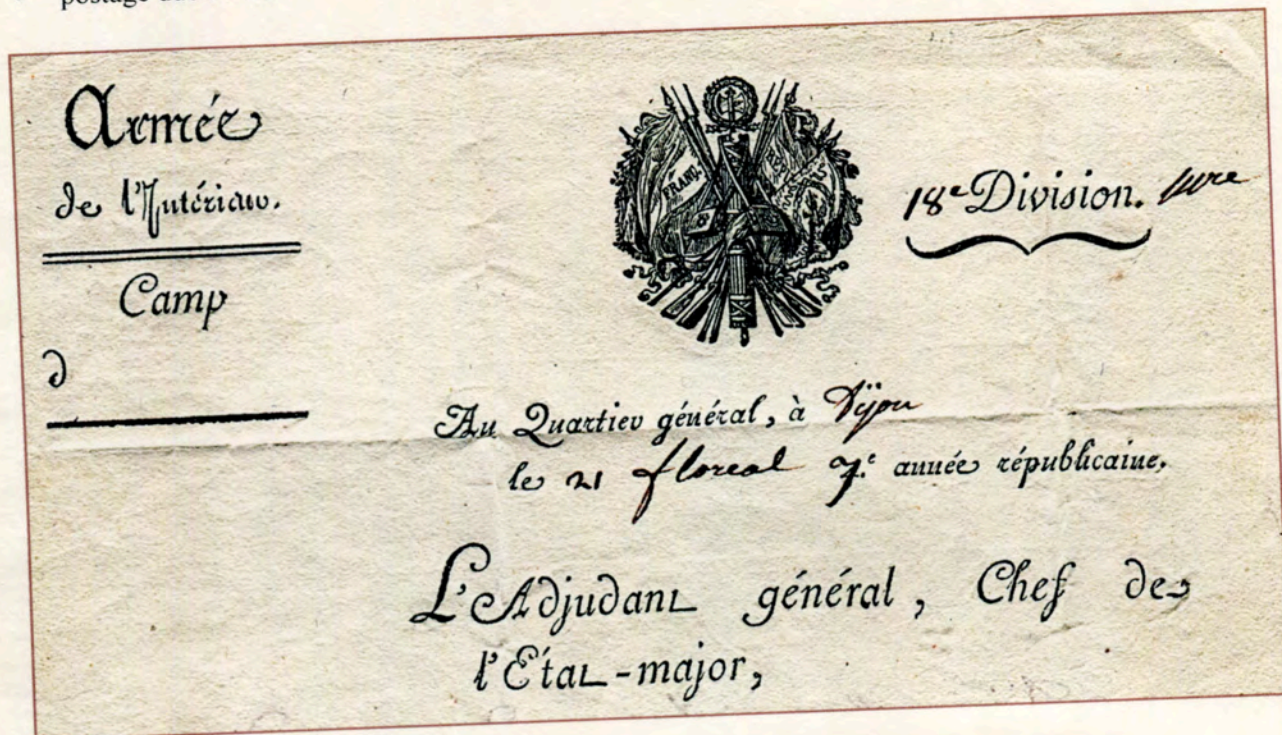 postage
Armée
de l'Intérieur.
Camp
d
FRANÇ.
18e Division.
Au Quartier général, à Dijon
le 21 floreal 7e. année républicaine,
L'Adjudant général, Chef de
l'Etat-major,